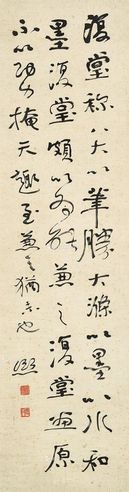 復堂称八大以筆勝大滌以墨以水和
墨復堂頗以為能兼之復堂畫原
不以功力掩天趣至兼之猶未也